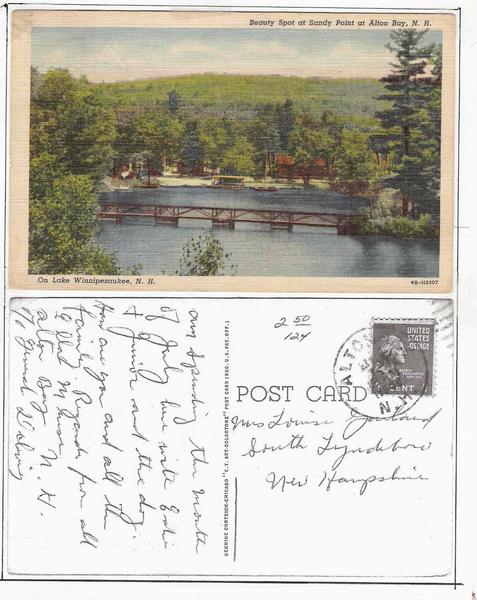 Beauty Spot at Sandy Point at Alton Bay, N. H.
On Lake Winnipesaukee, N. H.
6B-H2107
am spending the month
of July here with Eddie
& Junior and the dog.
How are you and all the
family Regards from all
Ella M
c/o General Delivery
Alton Bay N. H.
GENUINE CURTEICH-CHICAGO "C. T. ART-COLORTONE" POST CARD (REG. U.S. PAT. OFF.)
2 50
124
POST CARD
ALTON
N. H.
UNITED
STATES
OF
AMERICA
CENT
Mrs Louise
South Lyndeboro
New Hampshire